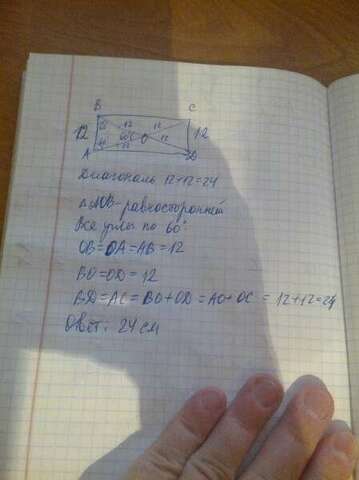 B C
60 12 12
12 60 60° O 12 12
A 12 D
Диагональ 12+12=24
△AOB - равносторонний
Все углы по 60°
OB=OA=AB=12
BO=OD=12
BD=AC=BO+OD=AO+OC=12+12=24
Ответ: 24 см